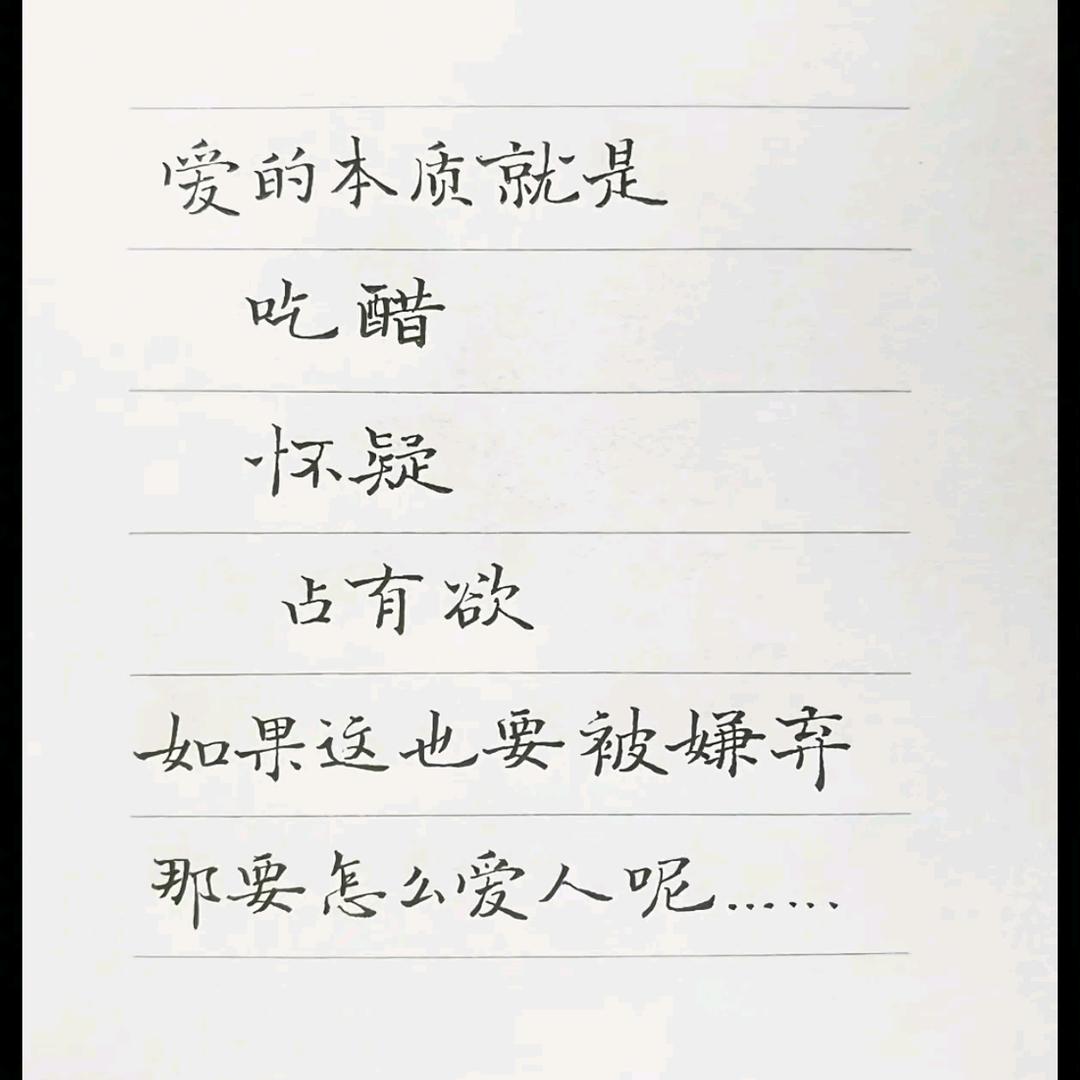 爱的本质就是
吃醋
怀疑
占有欲
如果这也要被嫌弃
那要怎么爱人呢……